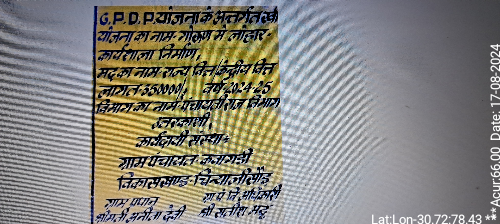 G.P.D.P. योजना के अन्तर्गत
योजना का नाम- में
कार्यशाला निर्माण,
मद का नाम राज्य वित्त/केन्द्रीय वित्त
लागत 350000/, वर्ष 2024-25
विभाग का नाम पंचायतीराज विभाग
उत्तरकाशी,
कार्यदायी संस्था:
ग्राम पंचायत
विकासखण्ड चिन्यालीसौड़
ग्राम प्रधान
श्रीमती देवी
श्री
Lat:Lon-30.72:78.43 ** Acur:66.00 Date: 17-08-2024